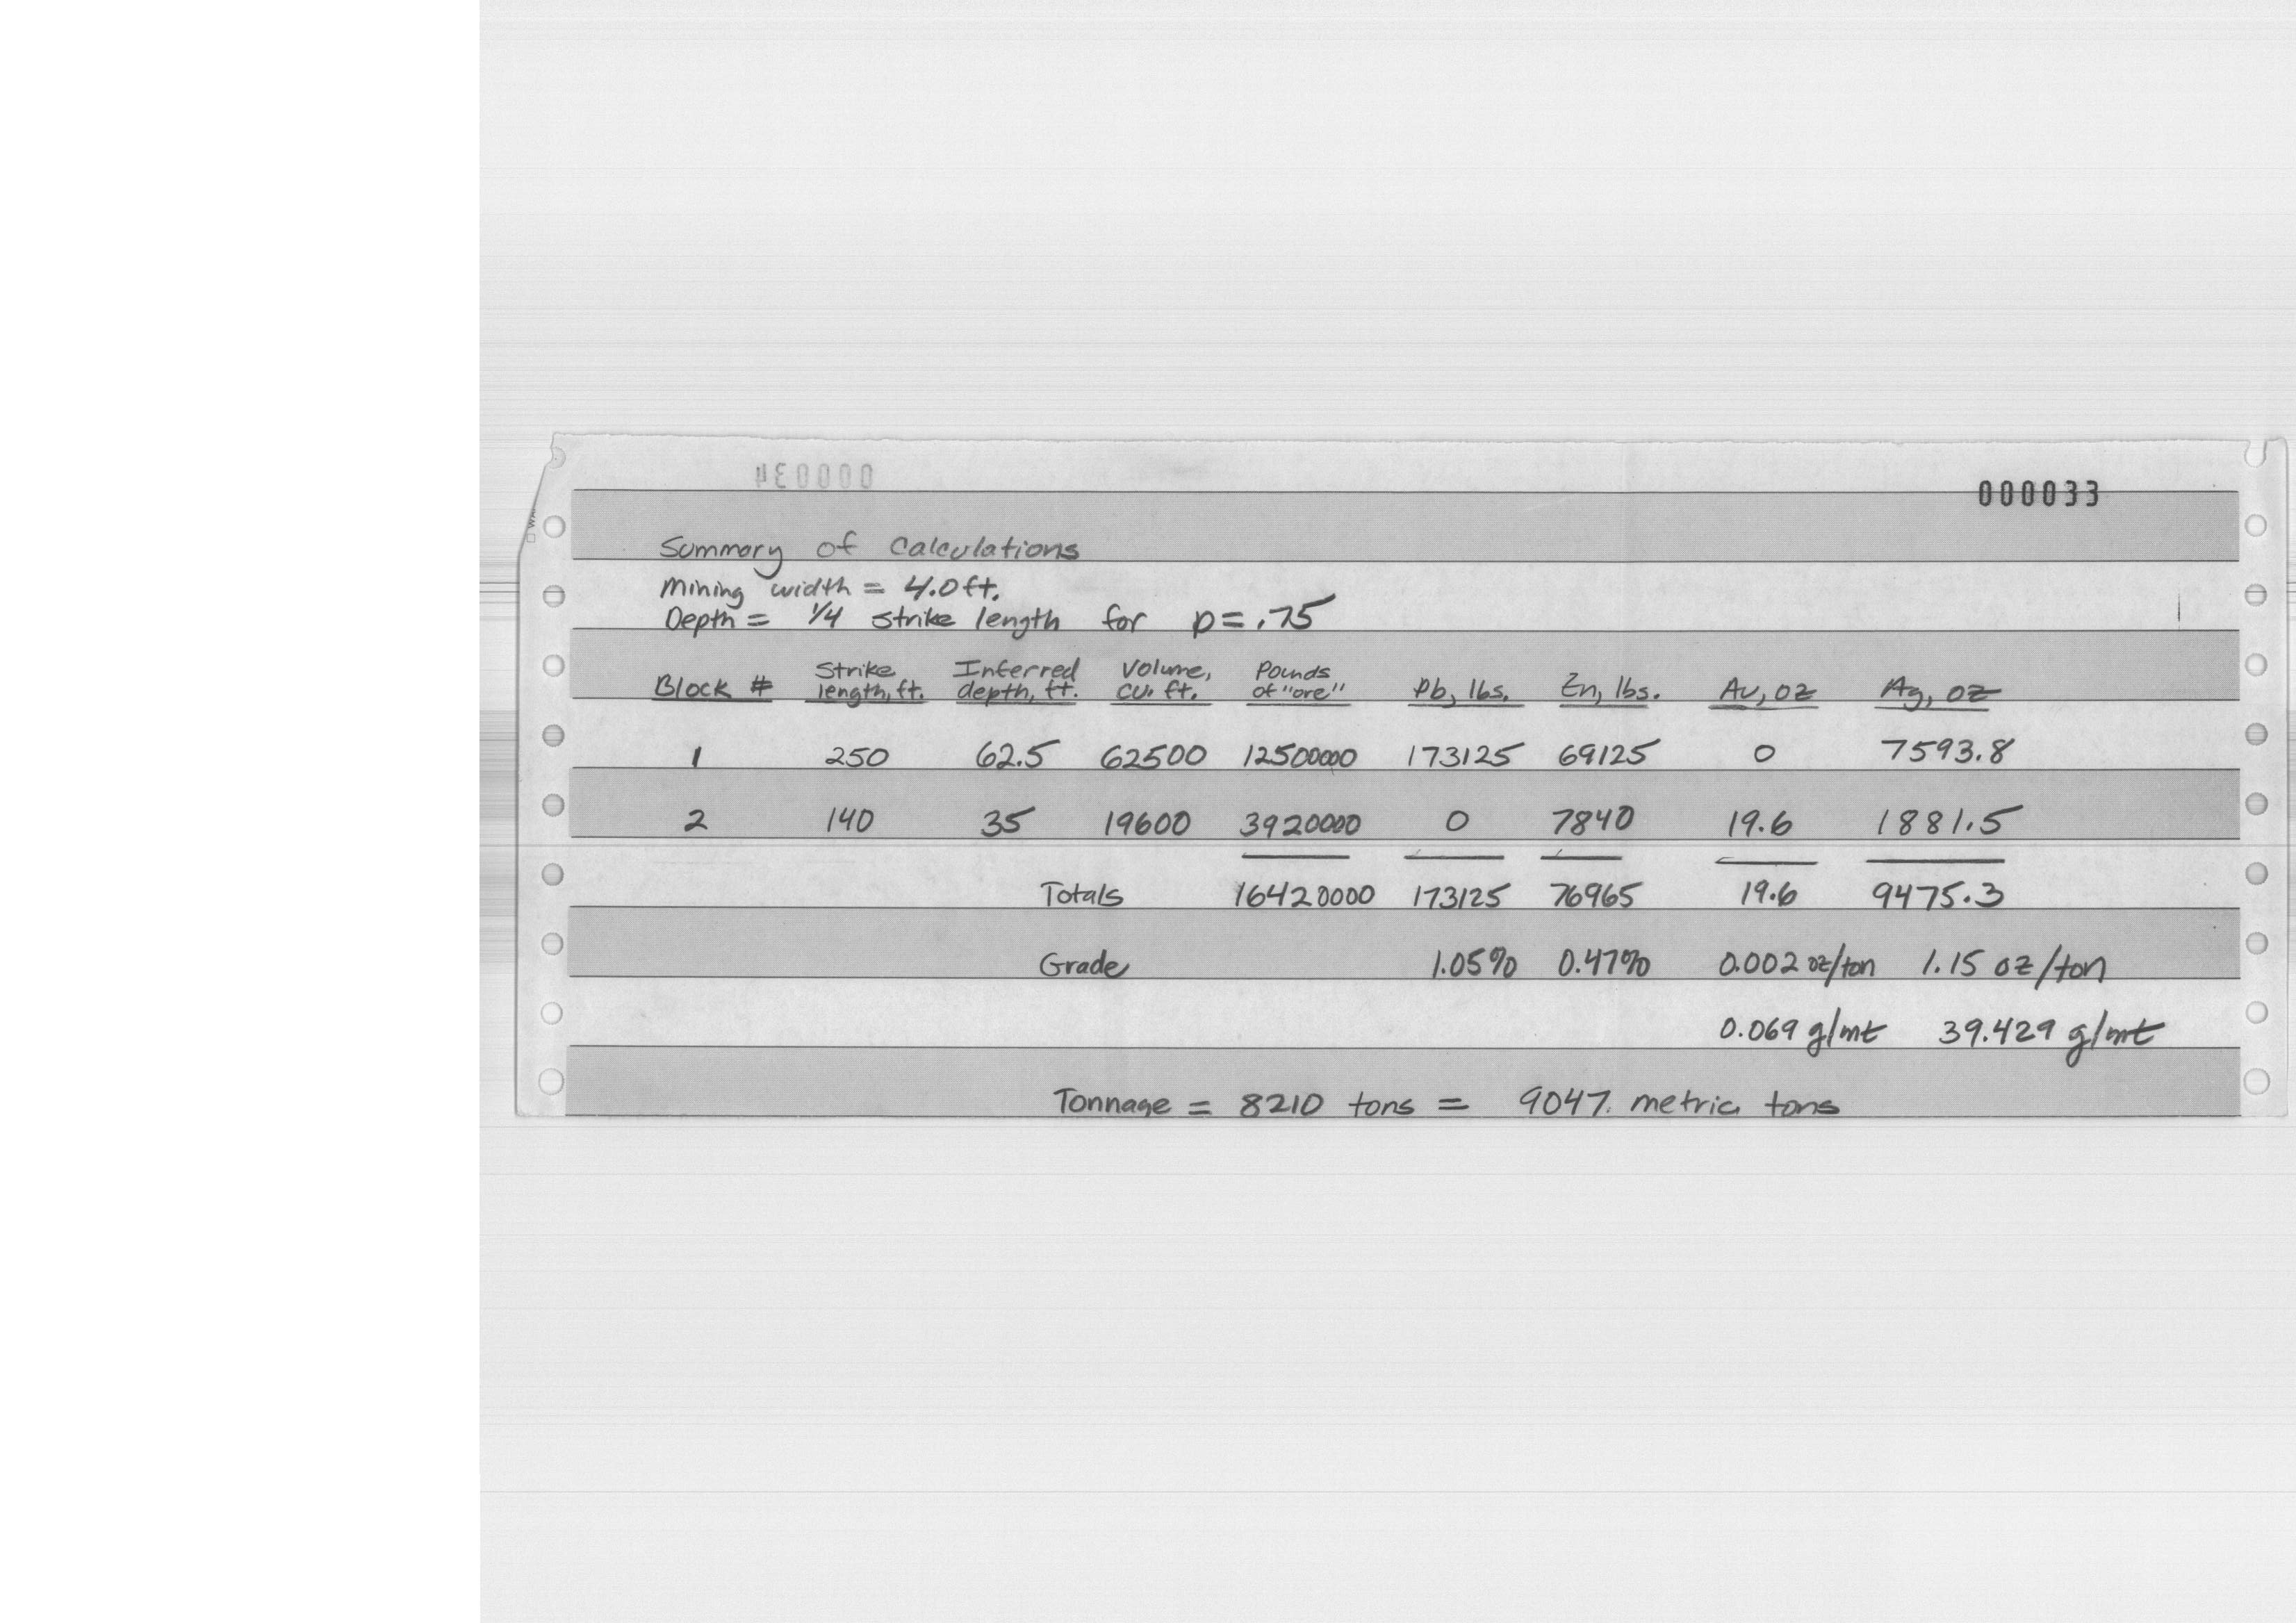 000034
000033
Summary of Calculations
Mining width = 4.0 ft.
Depth = 1/4 strike length for p = .75
Block # Strike length, ft. Inferred depth, ft. Volume, cu. ft. Pounds of "ore" Pb, lbs. Zn, lbs. Au, oz Ag, oz
1 250 62.5 62500 12500000 173125 69125 0 7593.8
2 140 35 19600 3920000 0 7840 19.6 1881.5
Totals 16420000 173125 76965 19.6 9475.3
Grade 1.05% 0.47% 0.002 oz/ton 1.15 oz/ton
0.069 g/mt 39.429 g/mt
Tonnage = 8210 tons = 9047. metric tons